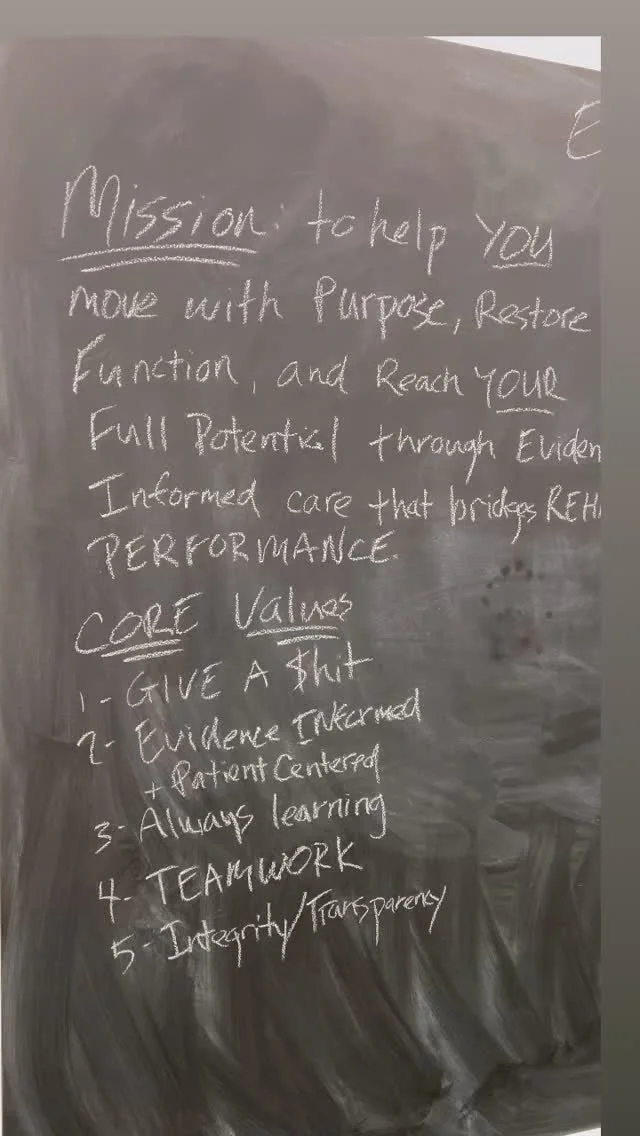 E
Mission: to help YOU
move with Purpose, Restore
Function, and Reach YOUR
Full Potential through Eviden
Informed care that bridges REH
PERFORMANCE.
CORE Values
1- GIVE A $hit
2- Evidence INFormed
+ Patient Centered
3- Always learning
4- TEAMWORK
5- Integrity/Transparency